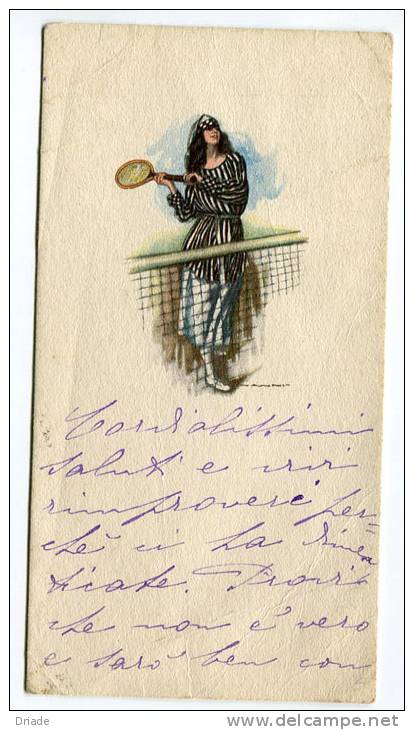 Cordialissimi
saluti e vivi
rimproveri per-
chè ci ha dimen
ticate. Provi
che non è vero
e sarò ben con
Driade
www.delcampe.net